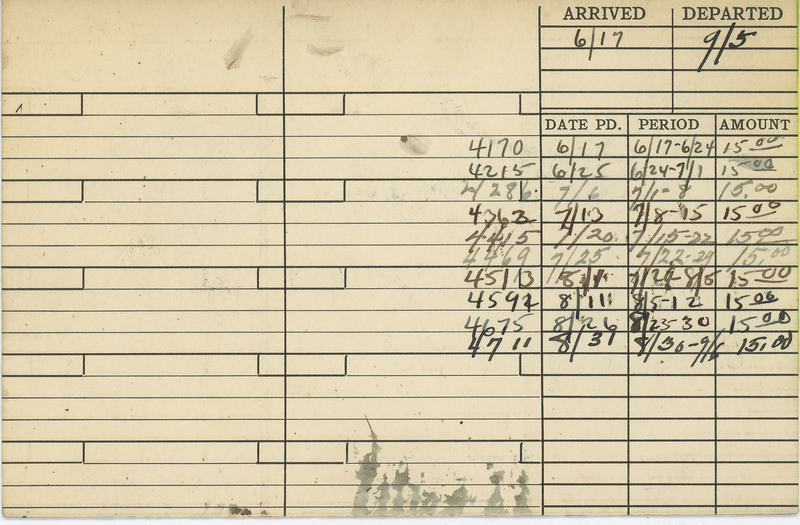 ARRIVED DEPARTED
6/17 9/5
DATE PD. PERIOD AMOUNT
4170 6/17 6/17-6/24 15.00
4215 6/25 6/24-7/1 15.00
4286 7/6 7/1-8 15.00
4362 7/13 7/8-15 15.00
4415 7/20 7/15-22 15.00
4469 7/25 7/22-29 15.00
4513 8/1 7/29-8/5 15.00
4592 8/11 8/5-12 15.00
4675 8/26 8/23-30 15.00
4711 8/31 8/30-9/6 15.00